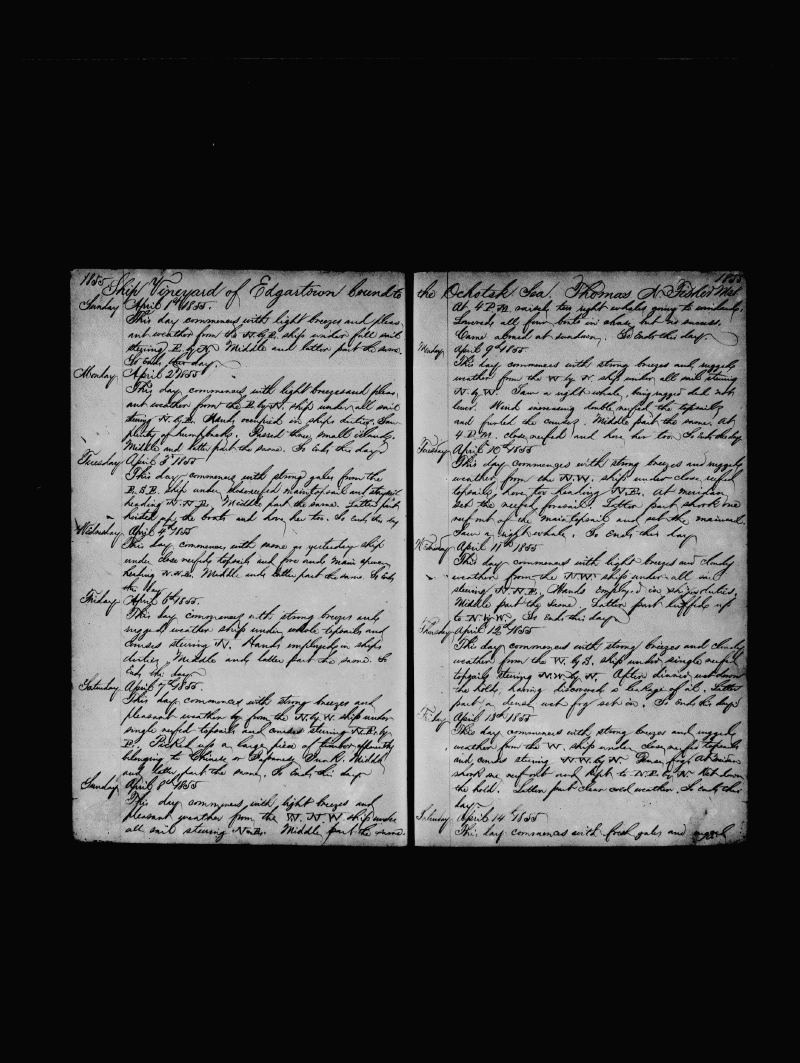 1855 Ship Vineyard of Edgartown bound to
Sunday April 1st 1855.
This day commences with light breezes and pleas
ant weather from the N.by E. ship under full sail
steering E. by N. Middle and latter part the same.
So Ends this day.
Monday April 2d 1855
This day commences with light breezes and pleas
ant weather from the E by N. ship under all sail
steering N. by E. Hands occupied in ships duties. Saw
plenty of humpbacks. Passed three small islands.
Middle and latter part the same. So Ends this day
Tuesday April 3d 1855
This day commences with strong gales from the
E.S.E. ship under close reefed maintopsail and
heading N.N.E. Middle part the same. Latter part
hoisted up the boats and hove her too. So Ends this day
Wednesday April 4th 1855
This day commences with same as yesterday ship
under close reefed topsails and fore and main
heading N.N.E. Middle and latter part the same. So Ends
this day
Friday April 6th 1855.
This day commences with strong breezes and
rugged weather ship under whole topsails and
courses steering N. Hands employed in ships
duties. Middle and latter part the same. So
Ends this day
Saturday April 7th 1855
This day commences with strong breezes and
pleasant weather by from the N. by W. ship under
single reefed topsails and courses steering N.E. by
E. Picked up a large piece of timber
belonging to Chinese or Japanese Junk. Middle
and latter part the same. So Ends this day
Sunday April 8th 1855
This day commences with light breezes and
pleasant weather from the W.N.W. ship under
all sail steering Middle part the same.
the Ochotsk Sea. Thomas N. 1855
At 4 P.M. raised two right whales going to windward.
Lowered all four boats in chase but no success.
Came aboard at sundown. So Ends this day.
Monday April 9th 1855
This day commences with strong breezes and rugged
weather from the W. by N. ship under all sail steering
N. by W. Saw a right whale, being rugged did not
lower. Wind increasing double reefed the topsails
and furled the courses. Middle part the same. At
4 P.M. close reefed and hove her too. So Ends this day
Tuesday April 10th 1855
This day commences with strong breezes and rugged
weather from the N.W. ship under close reefed
topsails, hove too heading N.E. At meridian
set the reefed foresail. Latter part shook one
reef out of the main topsail and set the mainsail.
Saw a right whale. So Ends this day
Wednesday April 11th 1855
This day commences with light breezes and cloudy
weather from the N.W. ship under all sail
steering N.N.E. Hands employed in ships duties,
Middle part the same. Latter part luffed up
to N. by W. So Ends this day
Thursday April 12th 1855
This day commences with strong breezes and cloudy
weather from the W. by S. ship under single reefed
topsails steering N.W. by N. After dinner went down
the hold, having discovered a leakage of oil. Latter
part a dense wet fog set in. So Ends this day
Friday April 13th 1855
This day commences with strong breezes and rugged
weather from the W. ship under close reefed topsails
and courses steering N.W. by W. Dense fog. At meridian
shook one reef out and kept to N.E. by N. Went down
the hold. Latter part clear cold weather. So Ends this
day
Saturday April 14th 1855
This day commences with fresh gales and rugged